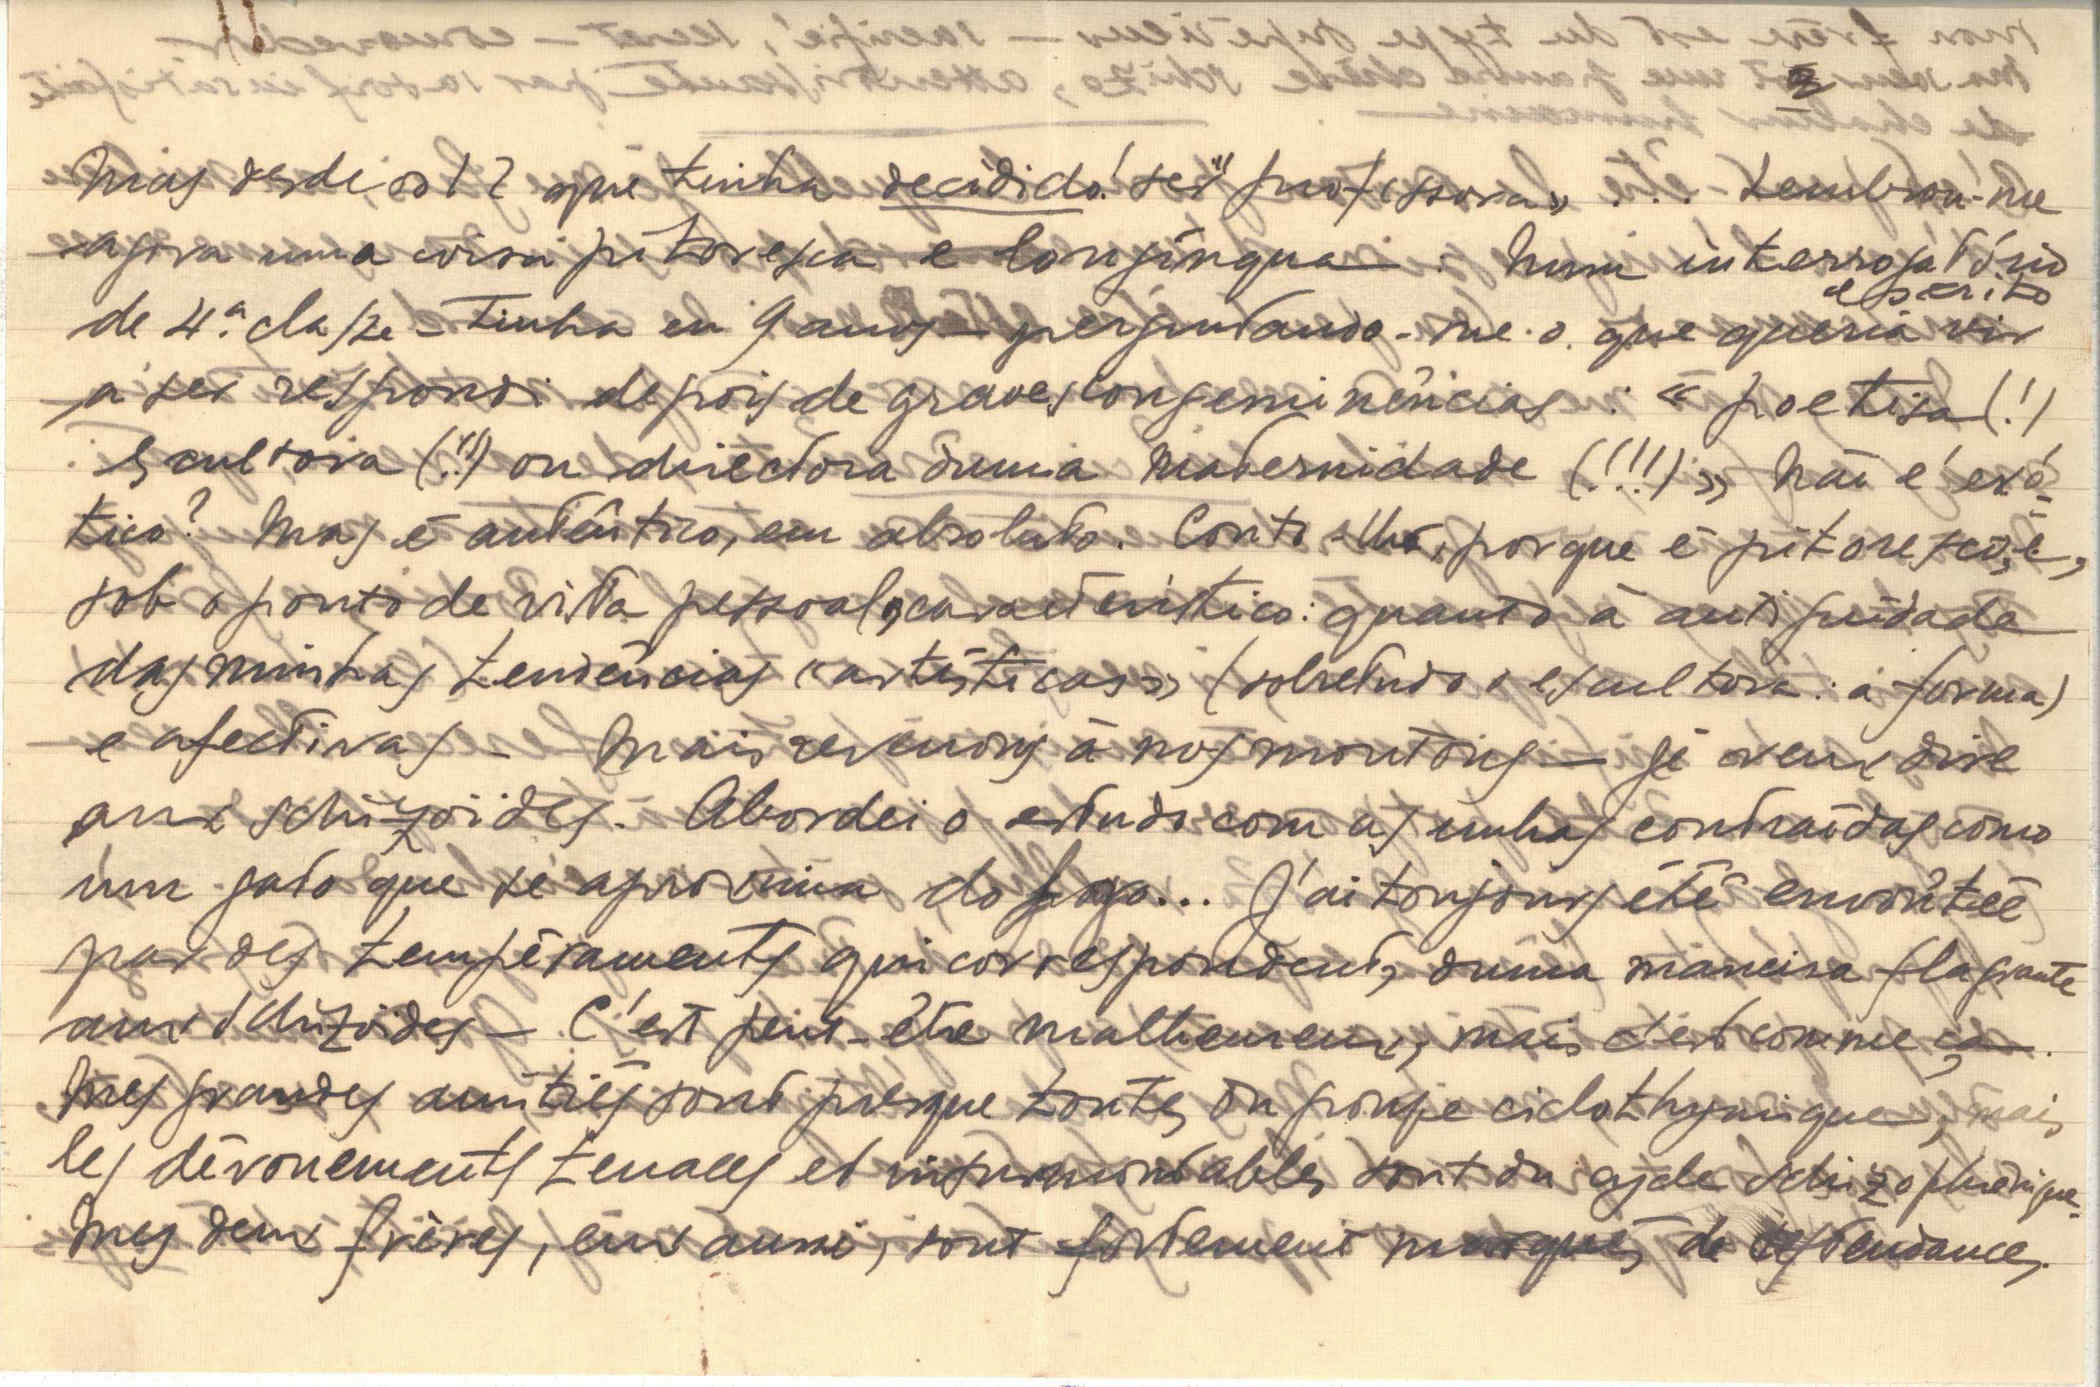 2
Mas desde os 12 que tinha decidido! ser "professora" . . . Lembrou-me
agora uma coisa pitoresca e longínqua : Num interrogatório
escrito
de 4.ª classe – tinha eu 9 anos – perguntando-me o que queria vir
a ser respondi depois de graves congeminências : « poetisa (!)
escultora (!!) ou directora duma Maternidade (!!!) » Não é exó-
tico? Mas é autêntico, em absoluto. Conto-lho, porque é pitoresco, e,
sob o ponto de vista pessoal, característico: quanto à antiguidade
das minhas tendências «artísticas» (sobretudo o escultora: a forma)
e afectivas – Mais revenons à nos moutons – je veux dire
aux schizoïdes. Abordei o estudo com as unhas contraídas como
um gato que se aproxima do fogo... J'ai toujours été envoûtée
par des tempéraments qui correspondent, duma maneira flagrante
aux schizoides – C'est peut-être malheureux, mais c'est comme ça.
Mes grandes amitiés sont presque toutes du groupe ciclothymique, mais
les dévouements tenaces et insurmontables sont du cycle schizophrénique.
Mes deux frères, eux aussi, sont fortement marqués de ces tendances.